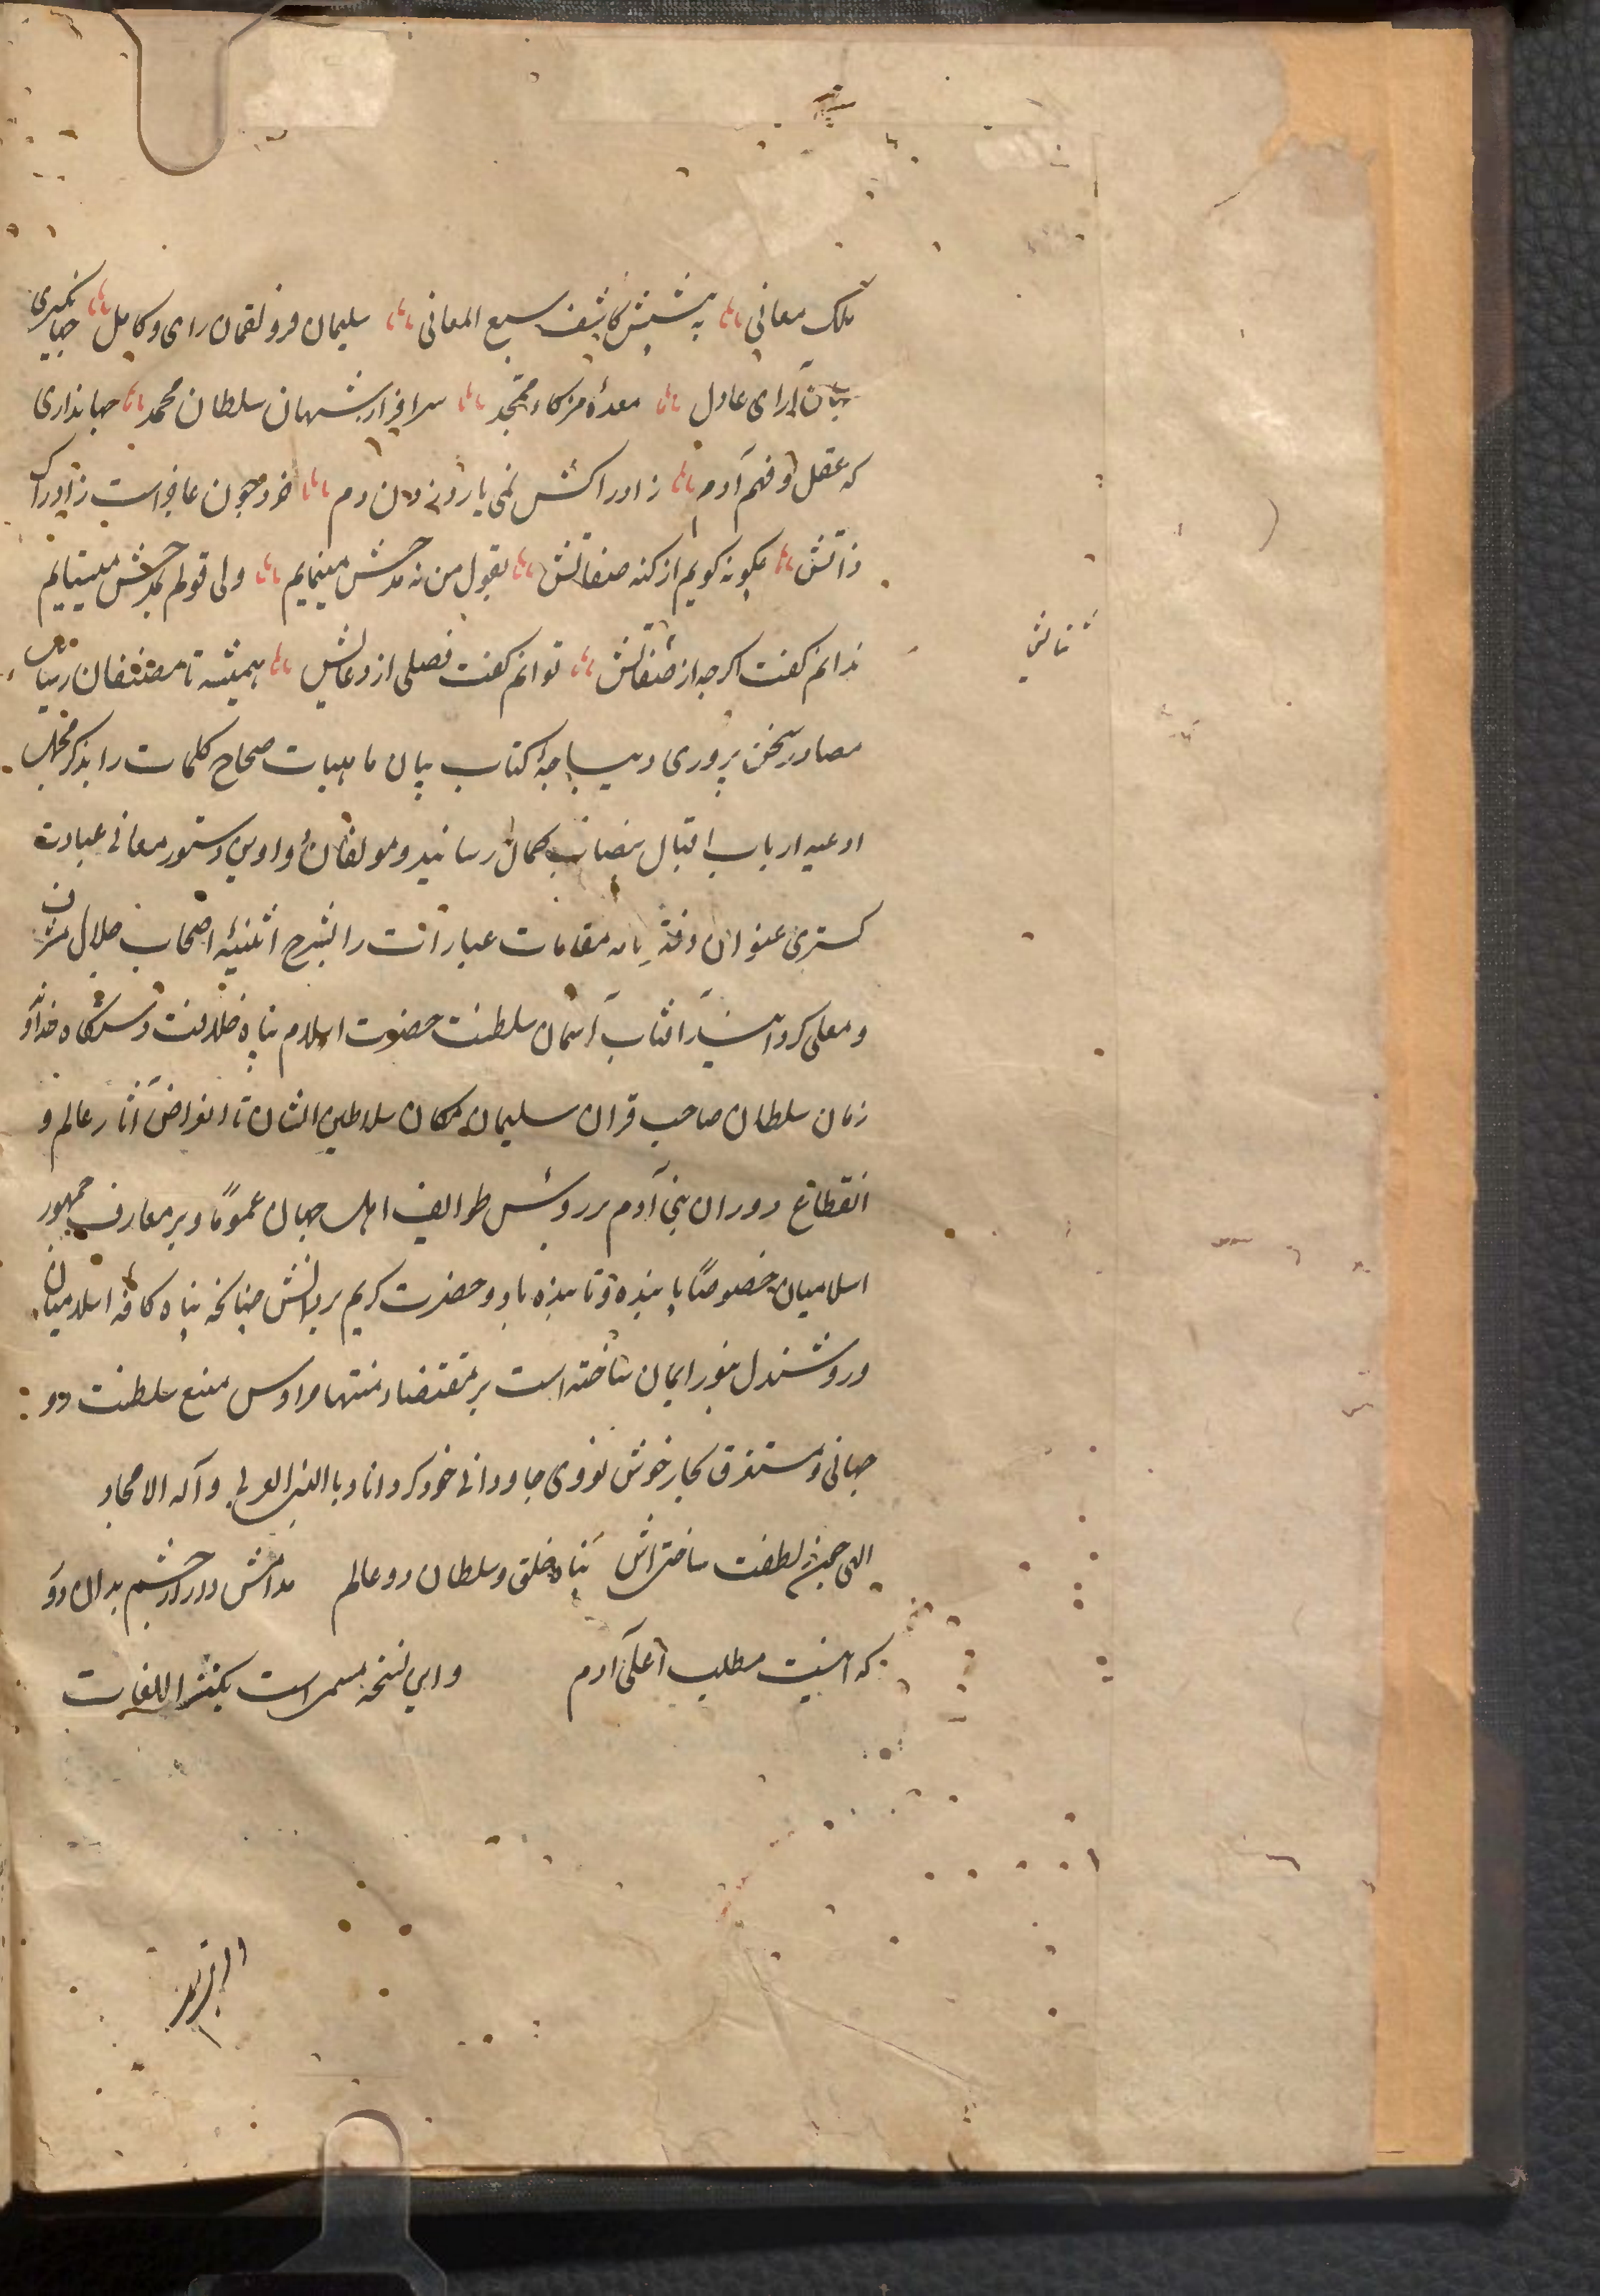 ملک معانی به پیشش کاشف سبع المعانی سلیمان فر و لقمان رای و کامل جهانگیری
جهان آرای عادل سرافراز شهان سلطان محمد جهانداری
که عقل و فهم آدم ز ادراکش نمی یارد زدن دم خرد چون عاجز است ز ادراک
ذاتش چگونه گویم از کنه صفاتش بقول من نه مدحش مینمایم ولی قولم بمدحش میستایم
ندانم گفت اگر چه از صفاتش توانم گفت فصلی از دعایش همیشه تا مصنفان
ثنائش
مصادر سخن پروری دیباجه کتاب بیان ماهیات صحاح کلمات را بذکر
ادعیه ارباب اقبال بنصاب کمال رسانید و مولفان دواوین دستور معانی عبادت
کستری عنوان دفتر مقامات عبارات را بشرح اثنیه اصحاب جلال مشرف
و معلی کرد آفتاب آسمان سلطنت حضرت اسلام پناه خلافت دستگاه خداوند
زمان سلطان صاحب قران سلیمان مکان سلاطین الشان تا انقراض آثار عالم و
انقطاع دوران بنی آدم بر رؤس طوایف اهل جهان عموماً و بر معارف جمهور
اسلامیان خصوصاً پاینده و تابنده باد و حضرت کریم بر بدانش چنانکه پناه کافه اسلامیان
و روشندل بنور ایمان ساخته است بر مقتضاء منتهاء منبع سلطنت دو
جهانی و مستغرق بحار خوش جاودانی خود کرداناد بالنبی العربی و آله الامجاد
الهی چون ز لطفت ساختی اش پناه خلق و سلطان دو عالم مدامش دور از چشم بدان دو
که اینست مطلب اعلی آدم و این نسخه مسمی است بکنز اللغات